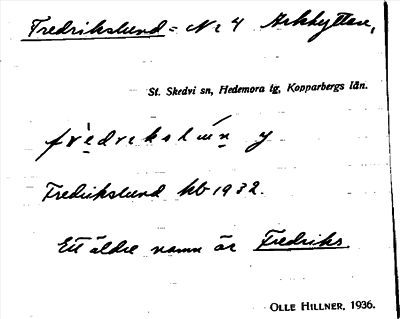 Fredrikslund = Nr 4 Arkhyttan,
St. Skedvi sn, Hedemora tg, Kopparbergs län.
Fredrikslund kb 1932.
Ett äldre namn är Fredriks.
OLLE HILLNER, 1936.